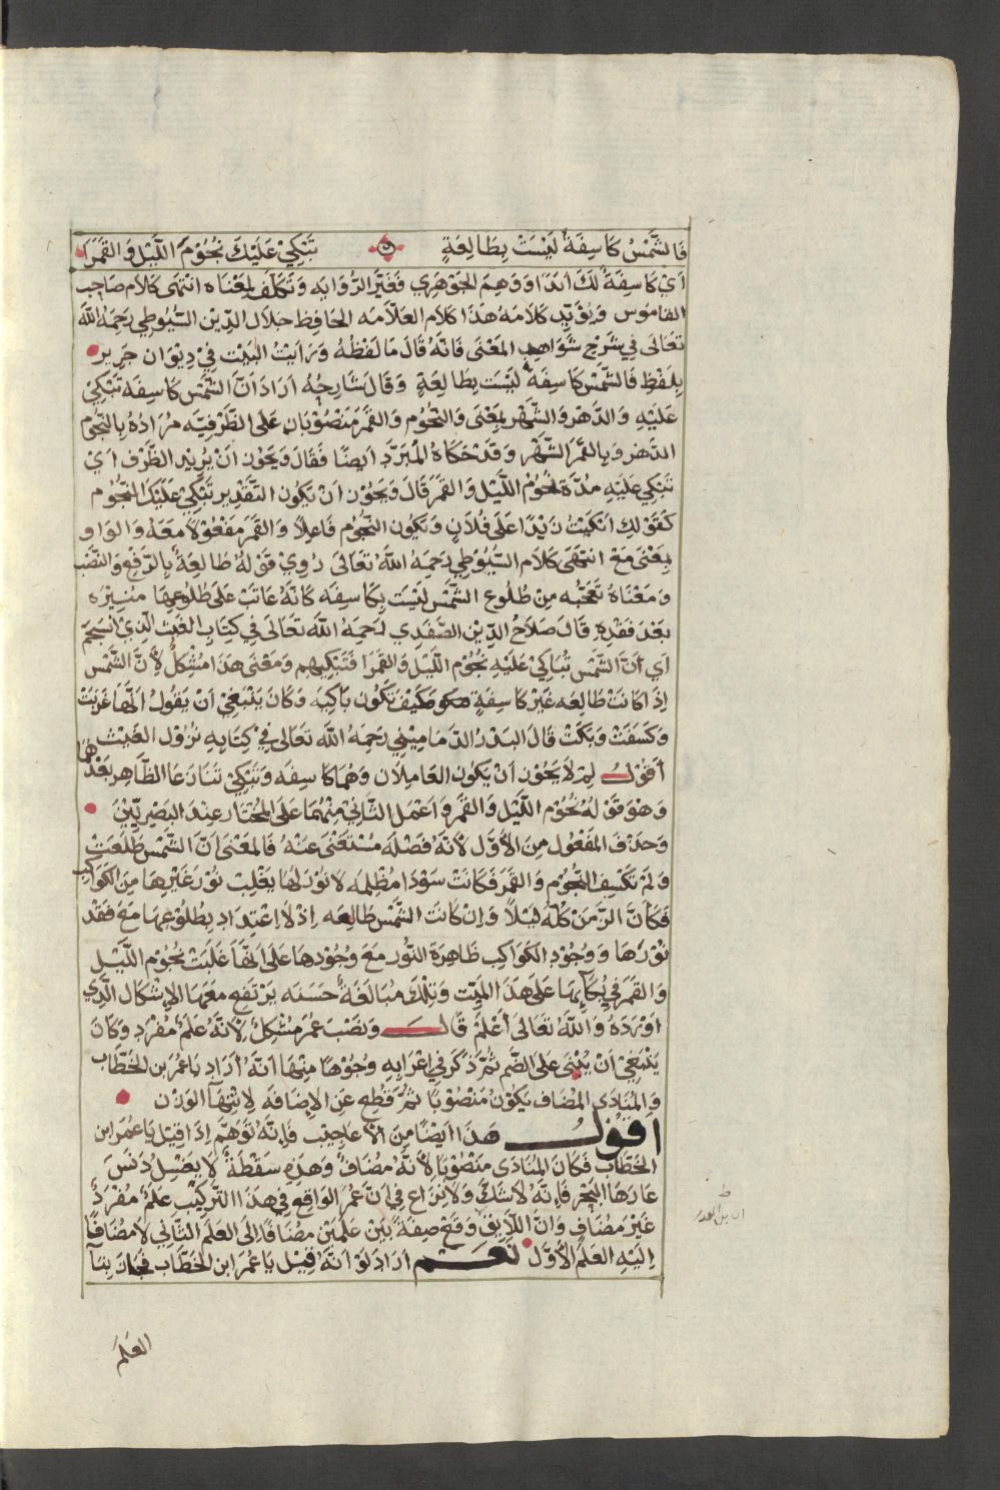 فَالشَّمْسُ كَاسِفَةٌ لَيْسَتْ بِطَالِعَةٍ تَبْكِيْ عَلَيْكَ نُجُوْمَ اللَّيْلِ وَالقَمَرَا
اَيْ كَاسِفَةٌ لَكَ اَبَدًا وَوَهِمَ الجَوْهَرِي فَغَيَّرَ الرِّوَايَه وَتَكَلَّفَ لِمَعْنَاه انْتَهَى كَلَام صَاحِب
القَامُوس وَيُؤَيِّد كَلَامَهُ هَذَا كَلَام العَلَّامَه الحَافِظ جَلَال الدِّيْن السُّيُوطِي رَحِمَهُ اللَّه
تَعَالَى فِي شَرْحِ شَوَاهِدِ المَغْنَى فَاِنَّهُ قَالَ مَا لَفْظُهُ وَرَاَيْتُ البَيْتَ فِيْ دِيْوَان جَرِيرٍ
بِلَفْظ فَالشَّمْس كَاسِفَة لَيْسَت بِطَالِعَةٍ وَقَالَ شَارِحُهُ اَرَادَ اَنَّ الشَّمْس كَاسِفَه تَبْكِيْ
عَلَيْهِ وَالدَّهْر وَالشَّهْر بِمَعْنَى وَالنُّجُوم وَالقَمَر مَنْصُوْبَانِ عَلَى الظَّرْفِيَّه مُرَادُهُ بِالنُّجُوم
الدَّهْر وَبِالقَمَر الشَّهْر وَقَدْ حَكَاهُ المُبَرَّد اَيضًا فَقَالَ وَيَجُوْز اَنْ يُرِيْد الظَّرْف اَيْ
تَبْكِي عَلَيْهِ مُدَّةَ نُجُوْم اللَّيْل وَالقَمَر قَالَ وَيَجُوْز اَنْ يَكُون التَّقْدِير تَبْكِيْ عَلَيْكَ النُّجُوْم
كَقَوْلِكَ اَبْكَيْتُ زَيْدًا عَلَى فُلَانٍ وَتَكُون النُّجُوْم فَاعِلًا وَالقَمَر مَفْعُوْلًا مَعَهُ وَالوَاو
بِمَعْنَى مَعَ انْتَهَى كَلَام السُّيُوْطِي رَحِمَهُ اللَّهُ تَعَالَى رُوِيْ قَوْلُهُ طَالِعَةٌ بِالرَّفْعِ وَالنَّصْب
وَمَعْنَاهُ تَعَجُّبه مِنْ طُلُوع الشَّمْس لَيْسَت بِكَاسِفَه كَانَّهُ عَاتَبَ عَلَى طُلُوعِهَا مُنِيْرَه
بَعْدَ فَقْدِهِ قَالَ صَلَاحُ الدِّيْن الصَّفَدِي رَحِمَهُ اللَّه تَعَالَى فِي كِتَابِ الغَيْث الَّذِيْ انْسَجَمَ
اَي اَنَّ الشَّمْس تُبَاكِيْ عَلَيْهِ نُجُوْم اللَّيْل وَالقَمَرا فَتَبْكِيهِم وَمَعْنَى هَذَا مُشْكِلٌ لِاَنَّ الشَّمْس
اِذَا كَانَتْ طَالِعَه غَيْر كَاسِفَةٍ كَيْفَ تَكُون بَاكِيَه وَكَانَ يَنْبَغِيْ اَنْ يَقُولُ اَنَّهَا غَرَبَتْ
وَكَسَفَتْ وَبَكَتْ قَالَ البَدْرُ الدَّمَامِيْنِي رَحِمَهُ اللَّه تَعَالى فِيْ كِتَابِهِ نُزُوْل الغَيْث
اَقُوْلُ لِمَ لَا يَجُوْز اَنْ يَكُون العَامِلَان وَهُمَا كَاسِفَه وَتَبْكِيْ تَنَازَعَا الظَّاهِر بَعْدَهَا
وَهْوَ قَوْلهُ نُجُوْم اللَّيْل وَالقَمَر وَاَعْمَل الثَّانِيْ مِنْهُمَا عَلَى المُخْتَار عِنْدَ البَصْرِيِّيْنَ
وَحَذَفَ المَفْعُول مِنَ الاَوَّل لِاَنَّهُ فَضْلَه مُسْتَغْنًى عَنْهُ فَالمَعْنَى اَنَّ الشَّمْس طَلَعَت
وَلَمْ تَكْسِف النُّجُوْم وَالقَمَر فَكَانَتْ سَوْدَا مُظْلِمَه لَا نُوْرَ لَهَا يَغْلِب نُوْر غَيْرِهَا مِنَ الكَوَاكِب
فَكَاَنَّ الزَّمَنَ كُلّهُ لَيْلًا وَاِنْ كَانَت الشَّمْس طَالِعَه اِذْ لَا اِعْتِدَاد بِطُلُوْعِهَا مَعَ فَقْد
نُوْرَهَا وَوُجُوْدِ الكَوَاكِب ظَاهِرَة النُّوْر مَعَ وُجُوْدِهَا عَلَى اَنَّهَا غَلَبَتْ نُجُوْم اللَّيْل
وَالقَمَر فِي بُكَآئِهَا عَلَى هَذَا المَيِّت وَتِلْكَ مُبَالَغَةٌ حَسَنَه يَرْتَفِع مَعَهَا الاِشْكَال الَّذِي
اَوْرَدَهُ وَاللَّهُ تَعَالَى اَعْلَمُ قَالَ وَنَصْبَ عُمَرَ مُشْكِلٌ لِاَنَّهُ عَلَمٌ مُفْرَد وَكَانَ
يَنْبَغِيْ اَنْ يُبْنَى عَلَى الضَّم ثُمَّ ذَكَرَ فِي اِعْرَابِهِ وُجُوْهًا مِنْهَا اَنَّهُ اَرَادَ يَا عُمَر بن الخَطَّاب
وَالمُنَادَى المُضَاف يَكُوْن مَنْصُوْبًا ثُمَّ قَطَعَ عَنِ الاِضَافَه لِاِنْتِهَآ الوَزْن
اَقُوْلُ هَذَا اَيْضًا مِنَ الاَعَاجِيْب فَاِنَّهُ تَوَهَّمَ اِذَا قِيْلَ يَا عُمَر ابن
الخَطَّاب فَكَانَ المُنَادَى مَنْصُوْبًا لِاَنَّهُ مُضَافٌ وَهَذِهِ سَقْطَةٌ لَا يَغْسِلُ دَنَسَ
عَارهَا البَحْر فَاِنَّهُ لَا شَكَّ وَلَا نِزَاع فِي اَنَّ عُمَر الوَاقِع فِي هَذَا التَّرْكِيْب عَلَمٌ مُفْرَدٌ
غَيْرُ مُضَاف وَاَنَّ الَّابنَ وَقَعَ صِفَةً بَيْنَ عَلَمَيْنِ مُضَافًا اِلَى العَلَم الثَّانِي لَا مُضَافًا
اِلَيْهِ العَلَمُ الاَوَّل نَعَمْ اَرَادَ لَوْ اَنَّهُ قِيْلَ يَا عُمَرَ ابن الخَطَّاب فَجَازَ بِنَآ
العَلَم